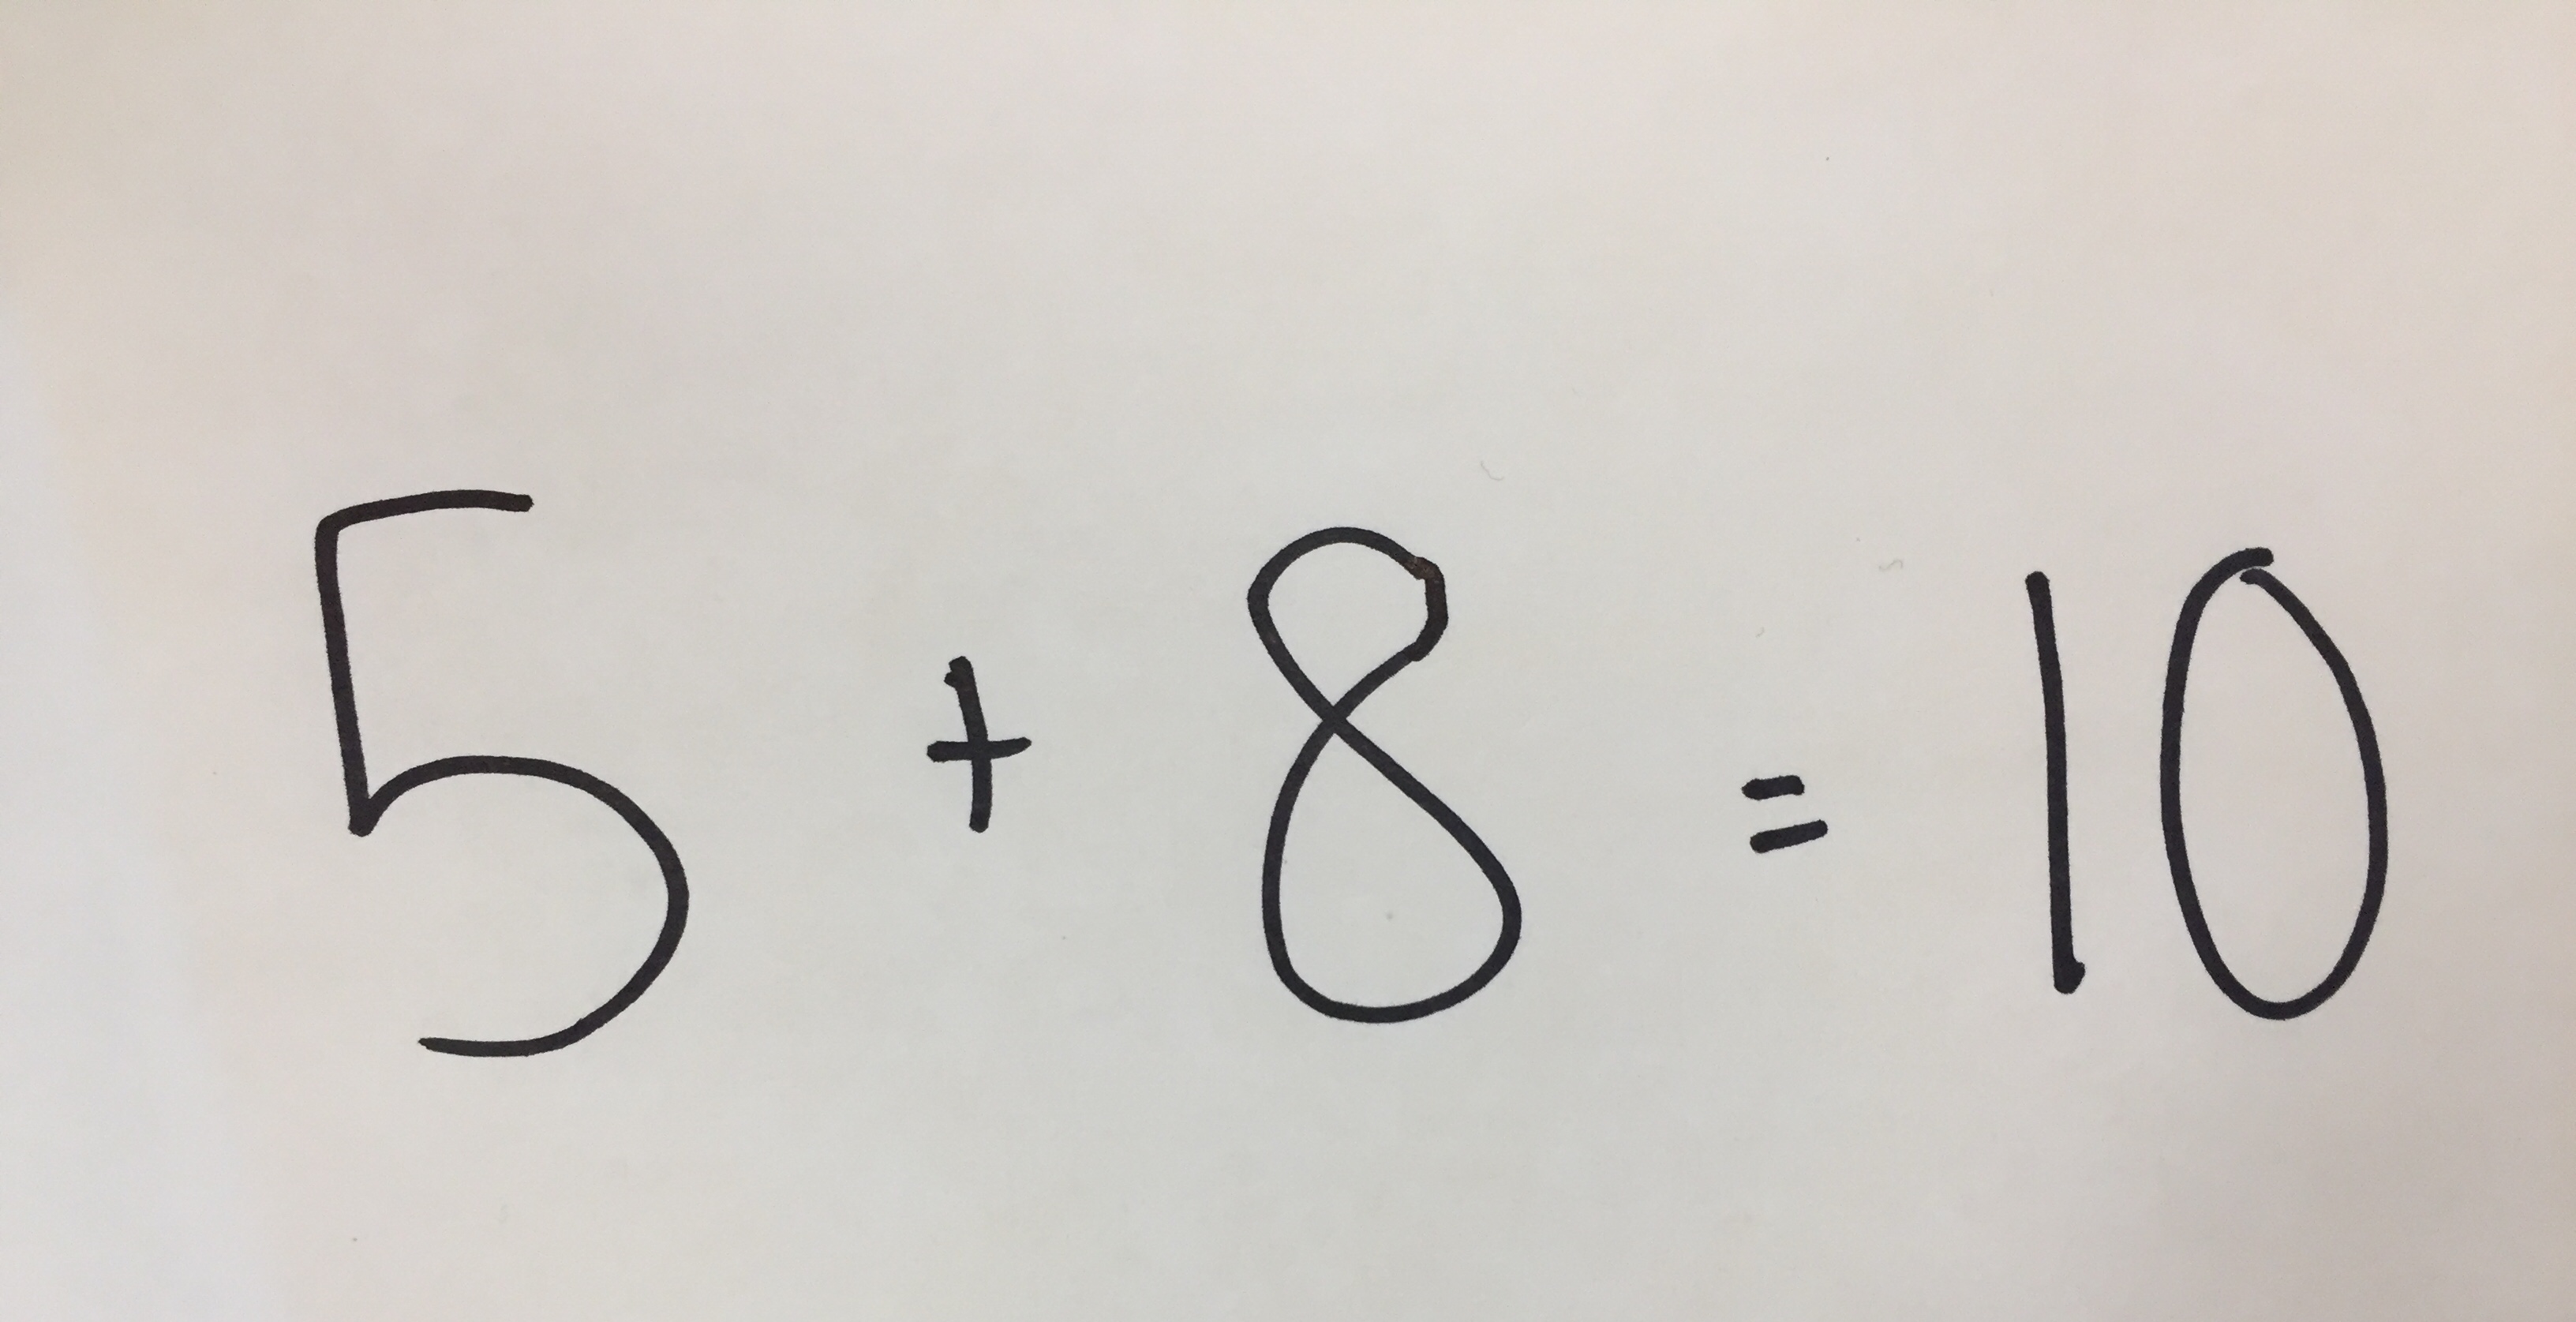 5 + 8 = 10